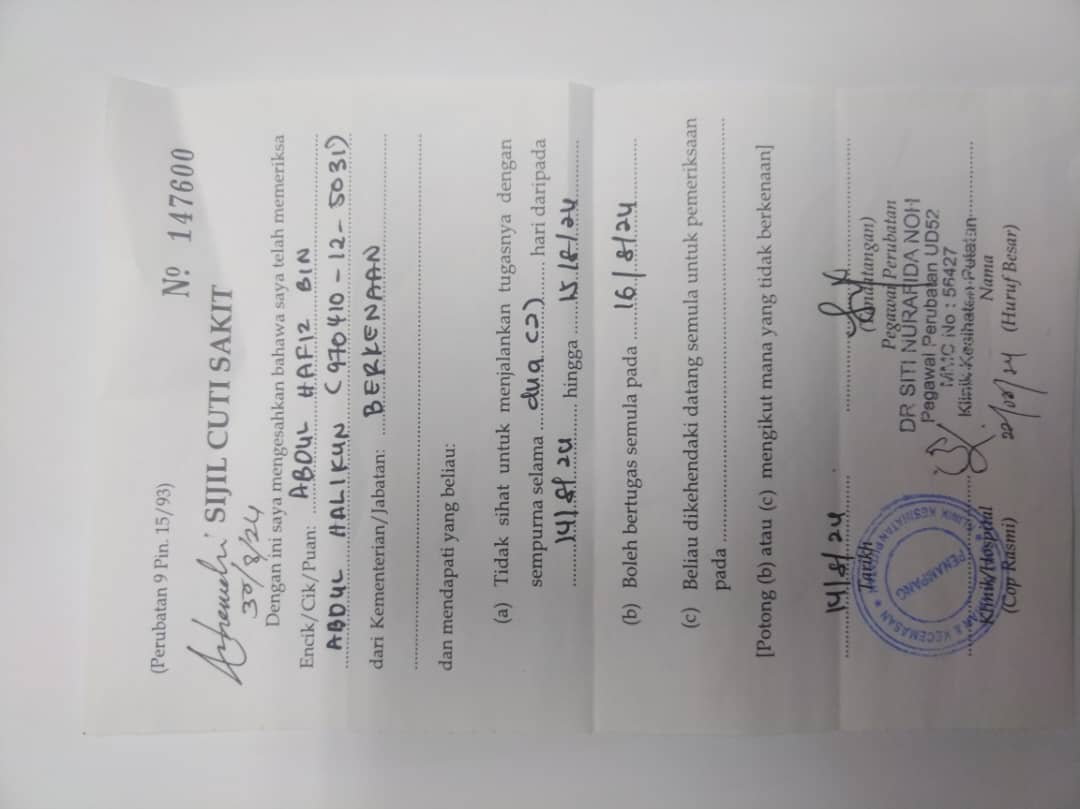 (Perubatan 9 Pin. 15/93)
Nº 147600
SIJIL CUTI SAKIT
30/8/24
Dengan ini saya mengesahkan bahawa saya telah memeriksa
Encik/Cik/Puan: ABDUL HAFIZ BIN
ABDUL HALIKUN (970410-12-5031)
dari Kementerian/Jabatan: BERKENAAN
dan mendapati yang beliau:
(a) Tidak sihat untuk menjalankan tugasnya dengan
sempurna selama dua (2) hari daripada
14/8/24 hingga 15/8/24
(b) Boleh bertugas semula pada 16/8/24
(c) Beliau dikehendaki datang semula untuk pemeriksaan
pada
[Potong (b) atau (c) mengikut mana yang tidak berkenaan]
14/8/24
Tarikh
(Tandatangan)
Pegawai Perubatan
DR SITI NURAFIDA NOH
Pegawai Perubatan UD52
MMC No : 56427
Klinik Kesihatan Putatan
PENAMPANG
Klinik/Hospital
Nama
(Cop Rasmi)
22/08/24
(Huruf Besar)